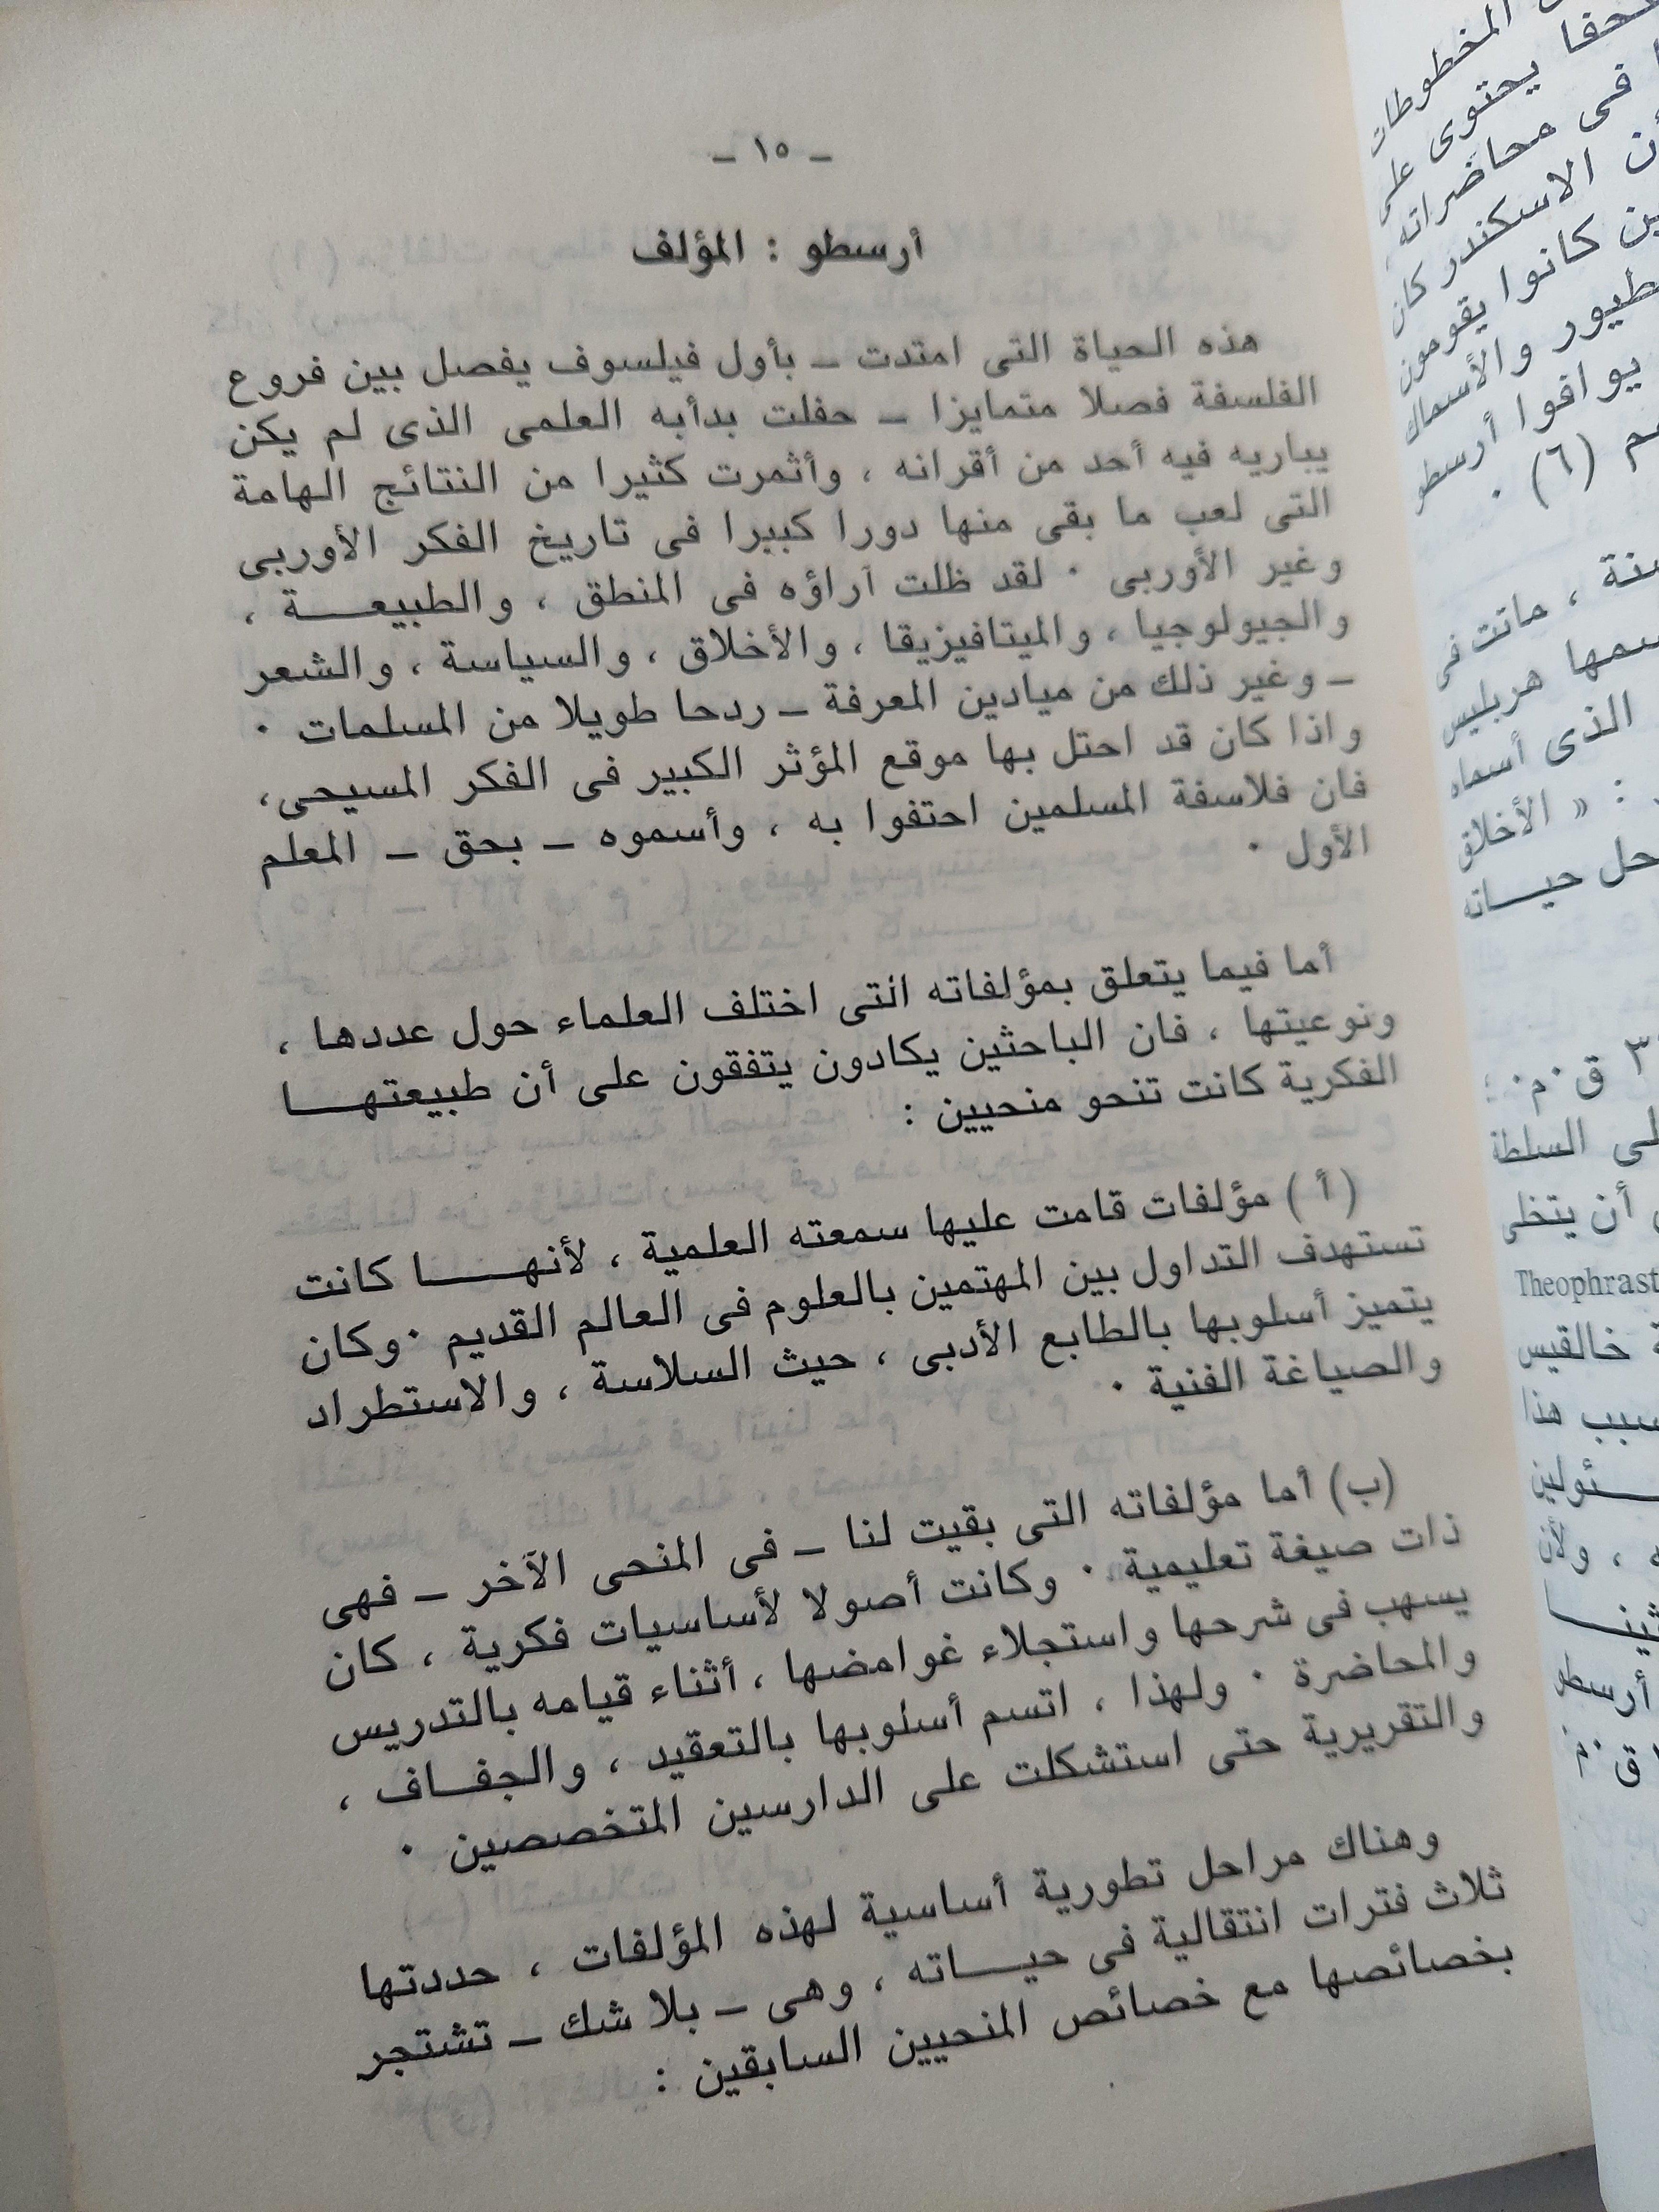 ـ ١٥ ـ
أرسطو : المؤلف
هذه الحياة التى امتدت ـ بأول فيلسوف يفصل بين فروع
الفلسفة فصلا متمايزا ـ حفلت بدأبه العلمى الذى لم يكن
يباريه فيه أحد من أقرانه ، وأثمرت كثيرا من النتائج الهامة
التى لعب ما بقى منها دورا كبيرا فى تاريخ الفكر الأوربى
وغير الأوربى ٠ لقد ظلت آراؤه فى المنطق ، والطبيعـــة ،
والجيولوجيا ، والميتافيزيقا ، والأخلاق ، والسياسة ، والشعر
ـ وغير ذلك من ميادين المعرفة ـ ردحا طويلا من المسلمات ٠
واذا كان قد احتل بها موقع المؤثر الكبير فى الفكر المسيحى،
فان فلاسفة المسلمين احتفوا به ، وأسموه ـ بحق ـ المعلم
الأول ٠
أما فيما يتعلق بمؤلفاته التى اختلف العلماء حول عددها ،
ونوعيتها ، فان الباحثين يكادون يتفقون على أن طبيعتهـــا
الفكرية كانت تنحو منحيين :
(أ) مؤلفات قامت عليها سمعته العلمية ، لأنهـــا كانت
تستهدف التداول بين المهتمين بالعلوم فى العالم القديم ٠وكان
يتميز أسلوبها بالطابع الأدبى ، حيث السلاسة ، والاستطراد
والصياغة الفنية ٠
(ب) أما مؤلفاته التى بقيت لنا ـ فى المنحى الآخر ـ فهى
ذات صيغة تعليمية ٠ وكانت أصولا لأساسيات فكرية ، كان
يسهب فى شرحها واستجلاء غوامضها ، أثناء قيامه بالتدريس
والمحاضرة ٠ ولهذا ، اتسم أسلوبها بالتعقيد ، والجفــاف ،
والتقريرية حتى استشكلت على الدارسين المتخصصين ٠
وهناك مراحل تطورية أساسية لهذه المؤلفات ، حددتها
ثلاث فترات انتقالية فى حيـــاته ، وهى ـ بلا شك ـ تشتجر
بخصائصها مع خصائص المنحيين السابقين :
المخطوطات
يحتوى على
فى محاضراته
الاسكندر كان
كانوا يقومون
والأسماك
يوافوا أرسطو
(٦) ٠
، ماتت فى
هربليس
الذى أسماه
: « الأخلاق
حيـــاته
ق٠م٠ ؛
السلطة
أن يتخلى
خالقيس
هذا
، ولأن
أرسطو
ق٠م٠